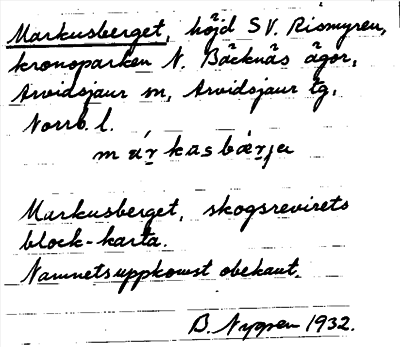 Markusberget, höjd SV. Rismyren,
kronoparken N. Bäcknäs ägor,
Arvidsjaur sn, Arvidsjaur tg,
Norrb. l.
Markusberget, skogsrevirets
block-karta.
Namnets uppkomst obekant.
B. Nygren 1932.